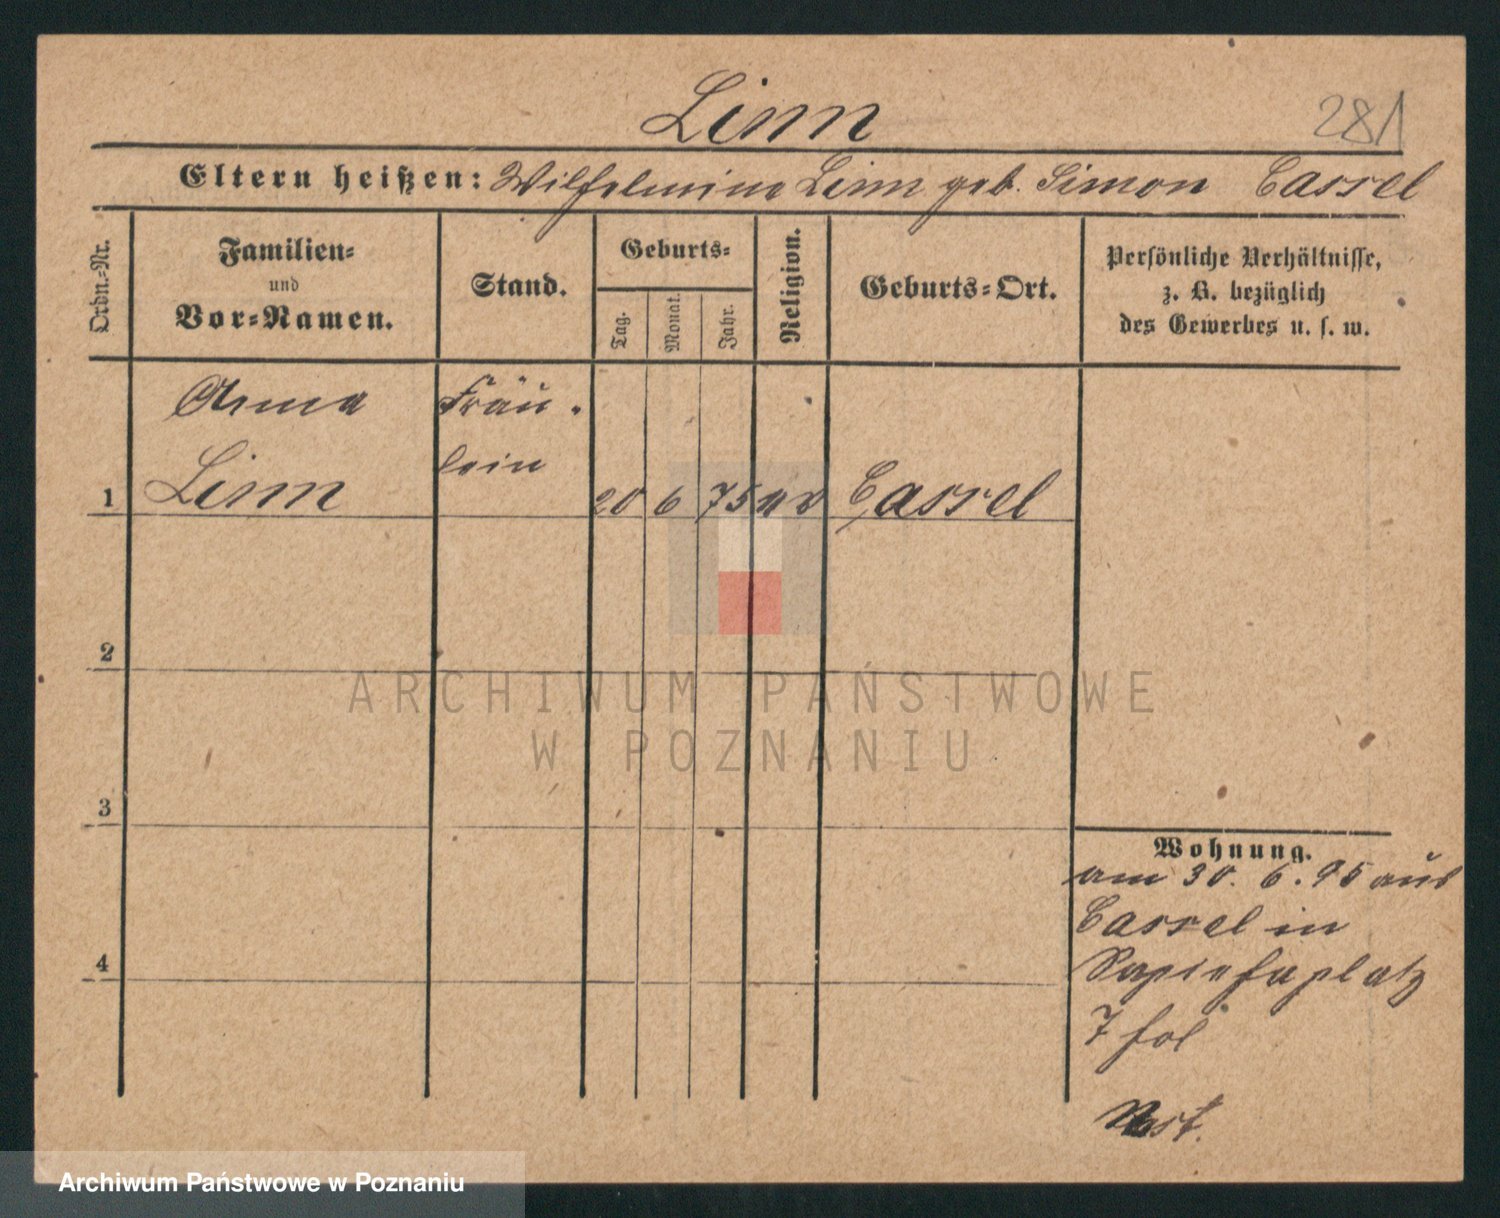 Linn
281
Eltern heißen: Wilhelmine Linn geb. Simon Cassel
Ordn.-Nr.
Familien-
und
Vor-Namen.
Stand.
Geburts-
Tag.
Monat.
Jahr.
Religion.
Geburts-Ort.
Persönliche Verhältnisse,
z. B. bezüglich
des Gewerbes u. s. w.
Anna Fräu-
lein
1 Linn 20 6 75 Cassel
2
3
4
Wohnung.
am 30. 6. 95 aus
Cassel in
Sapiehaplatz
7
ARCHIWUM PAŃSTWOWE
W POZNANIU
Archiwum Państwowe w Poznaniu